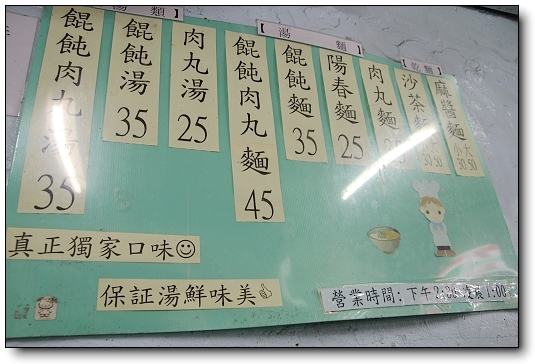 湯類】
餛飩肉丸湯 35
餛飩湯 35
肉丸湯 25
【湯麵】
餛飩肉丸麵 45
餛飩麵 35
陽春麵 25
肉丸麵
【乾麵】
沙茶麵 小大 30 50
麻醬麵 小大 30 50
真正獨家口味
保証湯鮮味美
營業時間:下午2:30 1:00